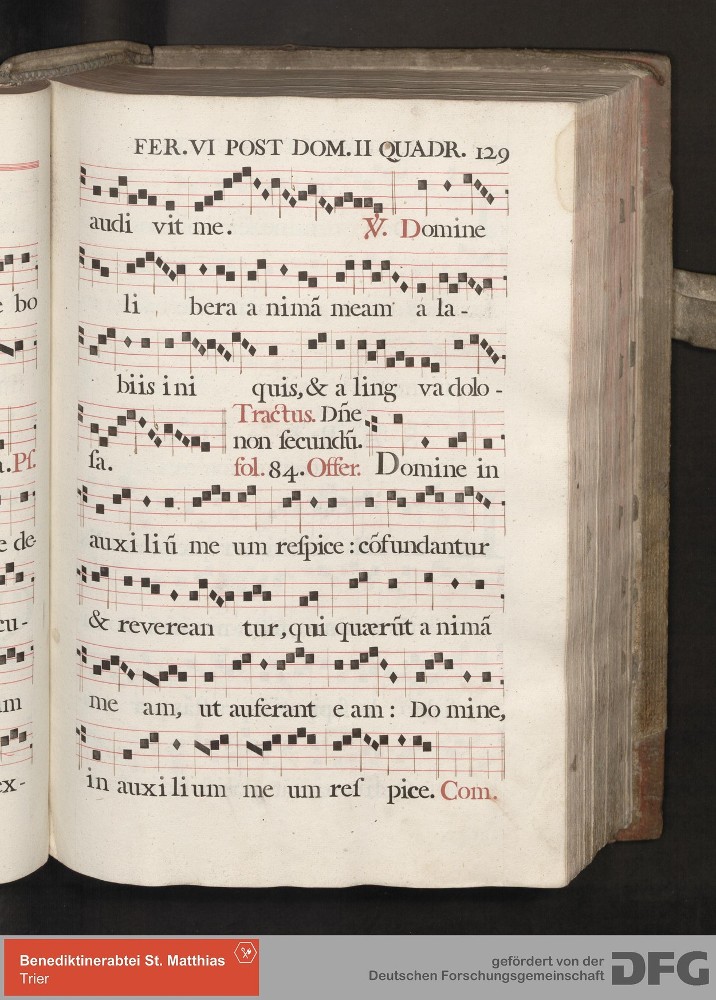 FER.VI POST DOM.II QUADR. 129
audi vit me. ℣. Domine
e bo
li bera a nimã meam a la-
biis ini quis, & a ling va dolo-
Tractus. Dñe
non secundũ.
a. Ps.
sa. fol. 84. Offer. Domine in
e de-
auxi liũ me um respice: cõfundantur
cu-
& reverean tur, qui quærũt a nimã
am
me am, ut auferant e am: Do mine,
ex-
in auxi li um me um res pice. Com.
Benediktinerabtei St. Matthias
Trier
gefördert von der
Deutschen Forschungsgemeinschaft DFG